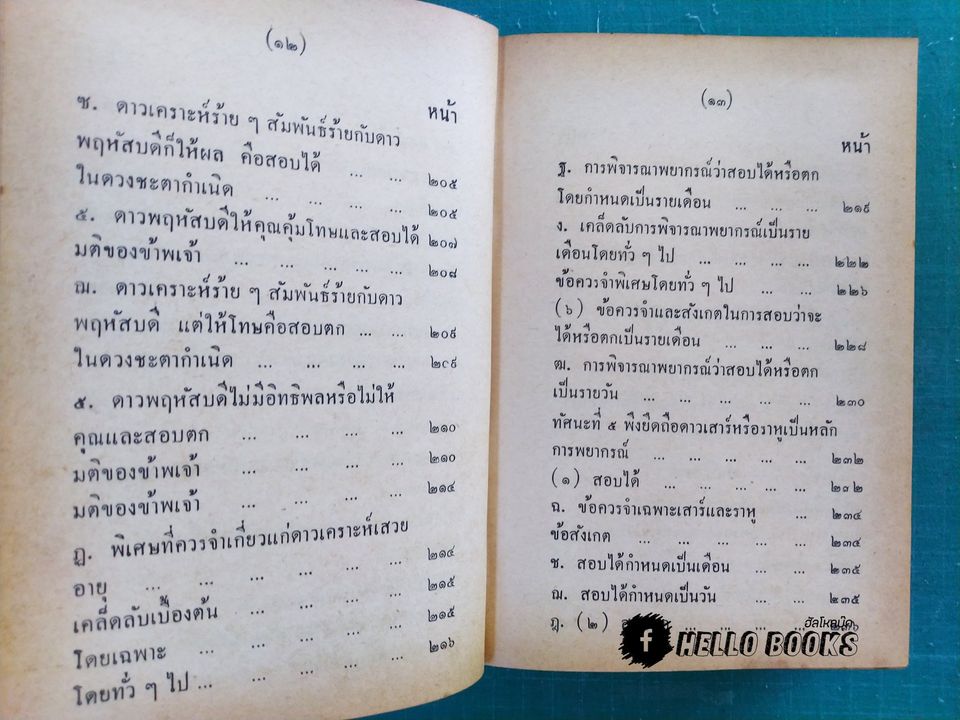 (๑๒)
หน้า
ซ. ดาวเคราะห์ร้าย ๆ สัมพันธ์ร้ายกับดาว
พฤหัสบดีก็ให้ผล คือสอบได้ ... ... ๒๐๕
ในดวงชะตากำเนิด ... ... ... ... ๒๐๕
๕. ดาวพฤหัสบดีให้คุณคุ้มโทษและสอบได้ ๒๐๗
มติของข้าพเจ้า ... ... ... ... ... ๒๐๘
ฌ. ดาวเคราะห์ร้าย ๆ สัมพันธ์ร้ายกับดาว
พฤหัสบดี แต่ให้โทษคือสอบตก ... ... ๒๐๙
ในดวงชะตากำเนิด ... ... ... ... ๒๐๙
๕. ดาวพฤหัสบดีไม่มีอิทธิพลหรือไม่ให้
คุณและสอบตก ... ... ... ... ๒๑๐
มติของข้าพเจ้า ... ... ... ... ๒๑๐
มติของข้าพเจ้า ... ... ... ... ๒๑๔
ฎ. พิเศษที่ควรจำเกี่ยวแก่ดาวเคราะห์เสวย
อายุ ... ... ... ... ... ... ๒๑๔
เคล็ดลับเบื้องต้น ... ... ... ... ๒๑๕
โดยเฉพาะ ... ... ... ... ... ๒๑๕
โดยทั่ว ๆ ไป ... ... ... ... ... ๒๑๖
(๑๓)
หน้า
ฐ. การพิจารณาพยากรณ์ว่าสอบได้หรือตก
โดยกำหนดเป็นรายเดือน ... ... ... ๒๑๙
ง. เคล็ดลับการพิจารณาพยากรณ์เป็นราย
เดือนโดยทั่ว ๆ ไป ... ... ... ... ๒๒๒
ข้อควรจำพิเศษโดยทั่ว ๆ ไป ... ... ๒๒๖
(๖) ข้อควรจำและสังเกตในการสอบว่าจะ
ได้หรือตกเป็นรายเดือน ... ... ... ๒๒๘
ฒ. การพิจารณาพยากรณ์ว่าสอบได้หรือตก
เป็นรายวัน ... ... ... ... ... ๒๓๐
ทัศนะที่ ๕ พึงยึดถือดาวเสาร์หรือราหูเป็นหลัก
การพยากรณ์ ... ... ... ... ... ๒๓๒
(๑) สอบได้ ... ... ... ... ... ๒๓๒
ฉ. ข้อควรจำเฉพาะเสาร์และราหู ... ๒๓๔
ข้อสังเกต ... ... ... ... ... ๒๓๔
ช. สอบได้กำหนดเป็นเดือน ... ... ๒๓๕
ฌ. สอบได้กำหนดเป็นวัน ... ... ๒๓๕
ฎ. (๒)
ฮัลโหลบุ๊ค
f HELLO BOOKS